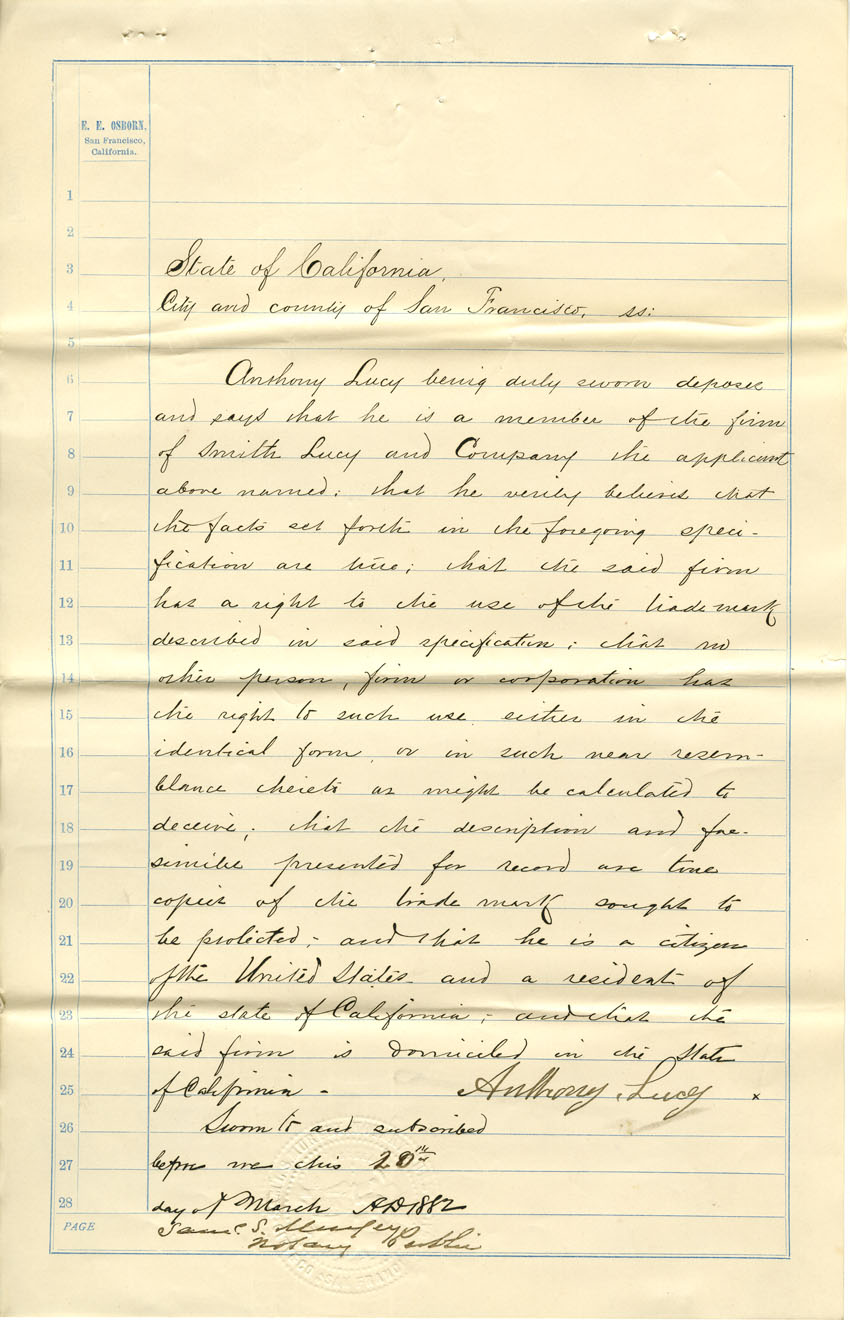 E. E. OSBORN,
San Francisco,
California.
1
2
3 State of California,
4 City and county of San Francisco, ss:
5
6 Anthony Lucy being duly sworn deposes
7 and says that he is a member of the firm
8 of Smith Lucy and Company the applicant
9 above named; that he verily believes that
10 the facts set forth in the foregoing speci-
11 fication are true; that the said firm
12 has a right to the use of the trade mark
13 described in said specification; that no
14 other person, firm or corporation has
15 the right to such use either in the
16 identical form, or in such near resem-
17 blance thereto as might be calculated to
18 deceive; that the description and fac-
19 simile presented for record are true
20 copies of the trade mark sought to
21 be protected; and that he is a citizen
22 of the United States and a resident of
23 the state of California; and that the
24 said firm is domiciled in the State
25 of California - Anthony Lucy x
26 Sworn to and subscribed
27 before me this 20th
28 day of March A.D. 1882
PAGE S.
Notary Public